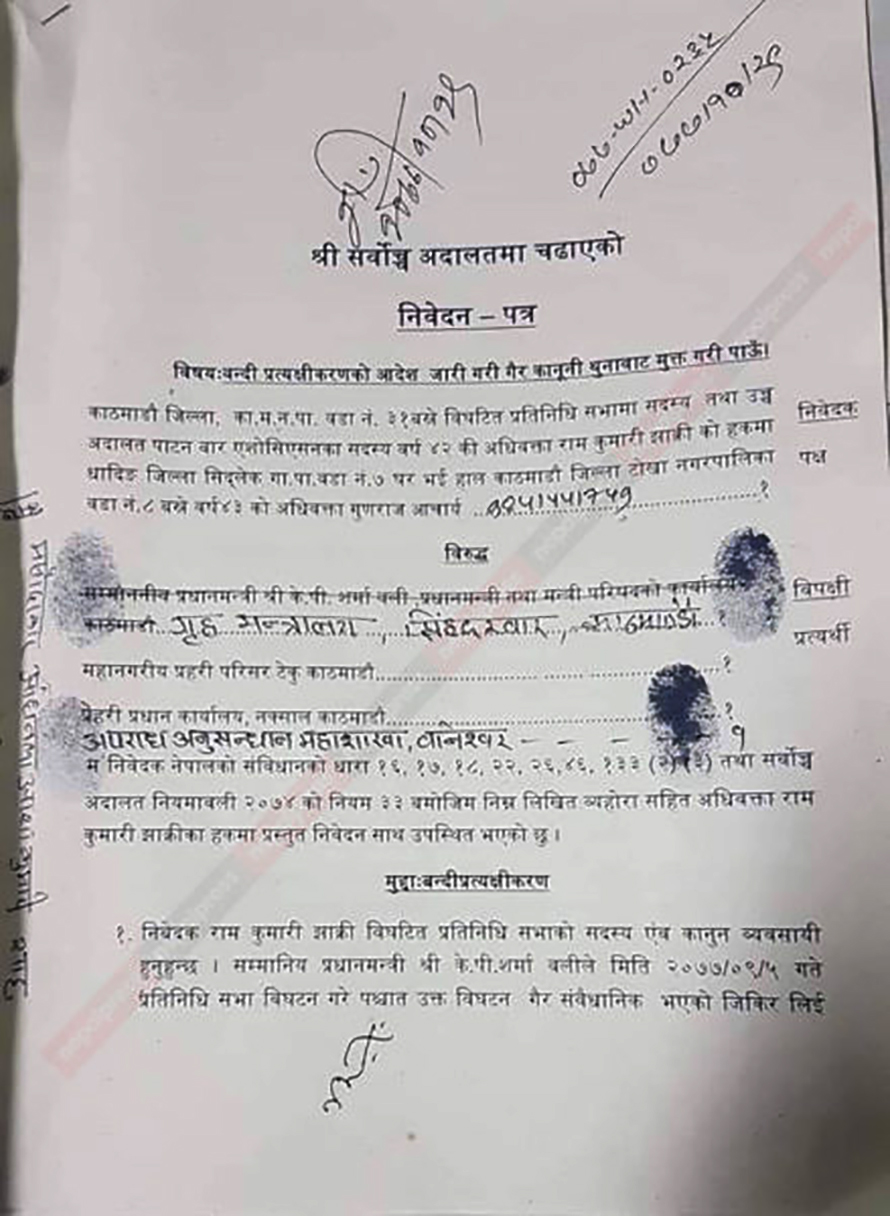 ०७७-WH-०२३५
०७७/१०/२९
२०७७/१०/२९
श्री सर्वोच्च अदालतमा चढाएको
निवेदन – पत्र
विषय:बन्दी प्रत्यक्षीकरणको आदेश जारी गरी गैर कानूनी थुनाबाट मुक्त गरी पाऊँ।
काठमाडौं जिल्ला, का.म.न.पा. वडा नं. ३१बस्ने विघटित प्रतिनिधि सभामा सदस्य तथा उच्च निवेदक
अदालत पाटन बार एशोसिएसनका सदस्य वर्ष ४२ की अधिवक्ता राम कुमारी झाक्री को हकमा
धादिङ जिल्ला सिद्लेक गा.पा.वडा नं.७ घर भई हाल काठमाडौं जिल्ला टोखा नगरपालिका पक्ष
वडा नं.८ बस्ने वर्ष४३ को अधिवक्ता गुणराज आचार्य ..............................१
विरुद्ध
सम्माननीय प्रधानमन्त्री श्री के.पी. शर्मा वली, प्रधानमन्त्री तथा मन्त्री परिषदको कार्यालय विपक्षी
काठमाडौं... गृह मन्त्रालय, सिंहदरवार, काठमाडौं १
प्रत्यर्थी
महानगरीय प्रहरी परिसर टेकु काठमाडौ.......................................................१
प्रहरी प्रधान कार्यालय, नक्साल काठमाडौं....................................................१
अपराध अनुसन्धान महाशाखा, वानेश्वर - - - - - १
म निवेदक नेपालको संविधानको धारा १६, १७, १८, २२, २६,४६, १३३ (२)(३) तथा सर्वोच्च
अदालत नियमावली २०७४ को नियम ३३ बमोजिम निम्न लिखित व्यहोरा सहित अधिवक्ता राम
कुमारी झाक्रीका हकमा प्रस्तुत निवेदन साथ उपस्थित भएको छु ।
मुद्दा:बन्दीप्रत्यक्षीकरण
१. निवेदक राम कुमारी झाक्री विघटित प्रतिनिधि सभाको सदस्य एंव कानुन व्यवसायी
हुनुहुन्छ । सम्मानिय प्रधानमन्त्री श्री के.पी.शर्मा वलीले मिति २०७७/०९/५ गते
प्रतिनिधि सभा विघटन गरे पश्चात उक्त विघटन गैर संवैधानिक भएको जिकिर लिई